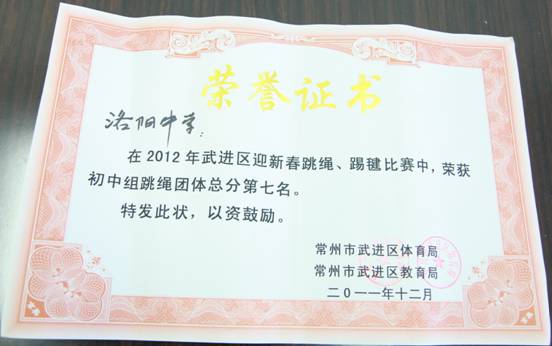 荣誉证书
洛阳中学：
在2012年武进区迎新春跳绳、踢毽比赛中，荣获
初中组跳绳团体总分第七名。
特发此状，以资鼓励。
常州市武进区体育局
常州市武进区教育局
二０一一年十二月